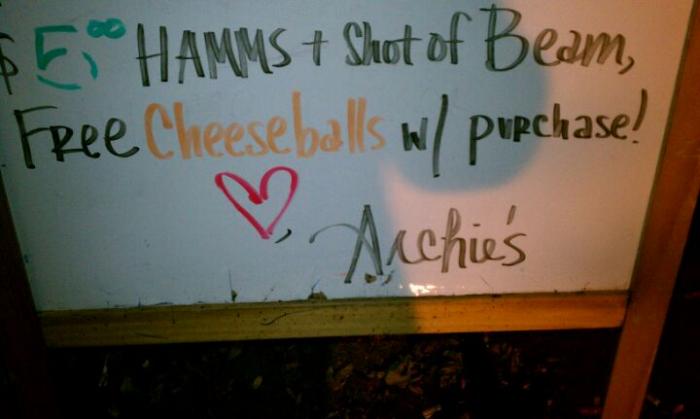 $5.00 HAMMS + Shot of Beam,
Free Cheeseballs w/ purchase!
♡, Archie's